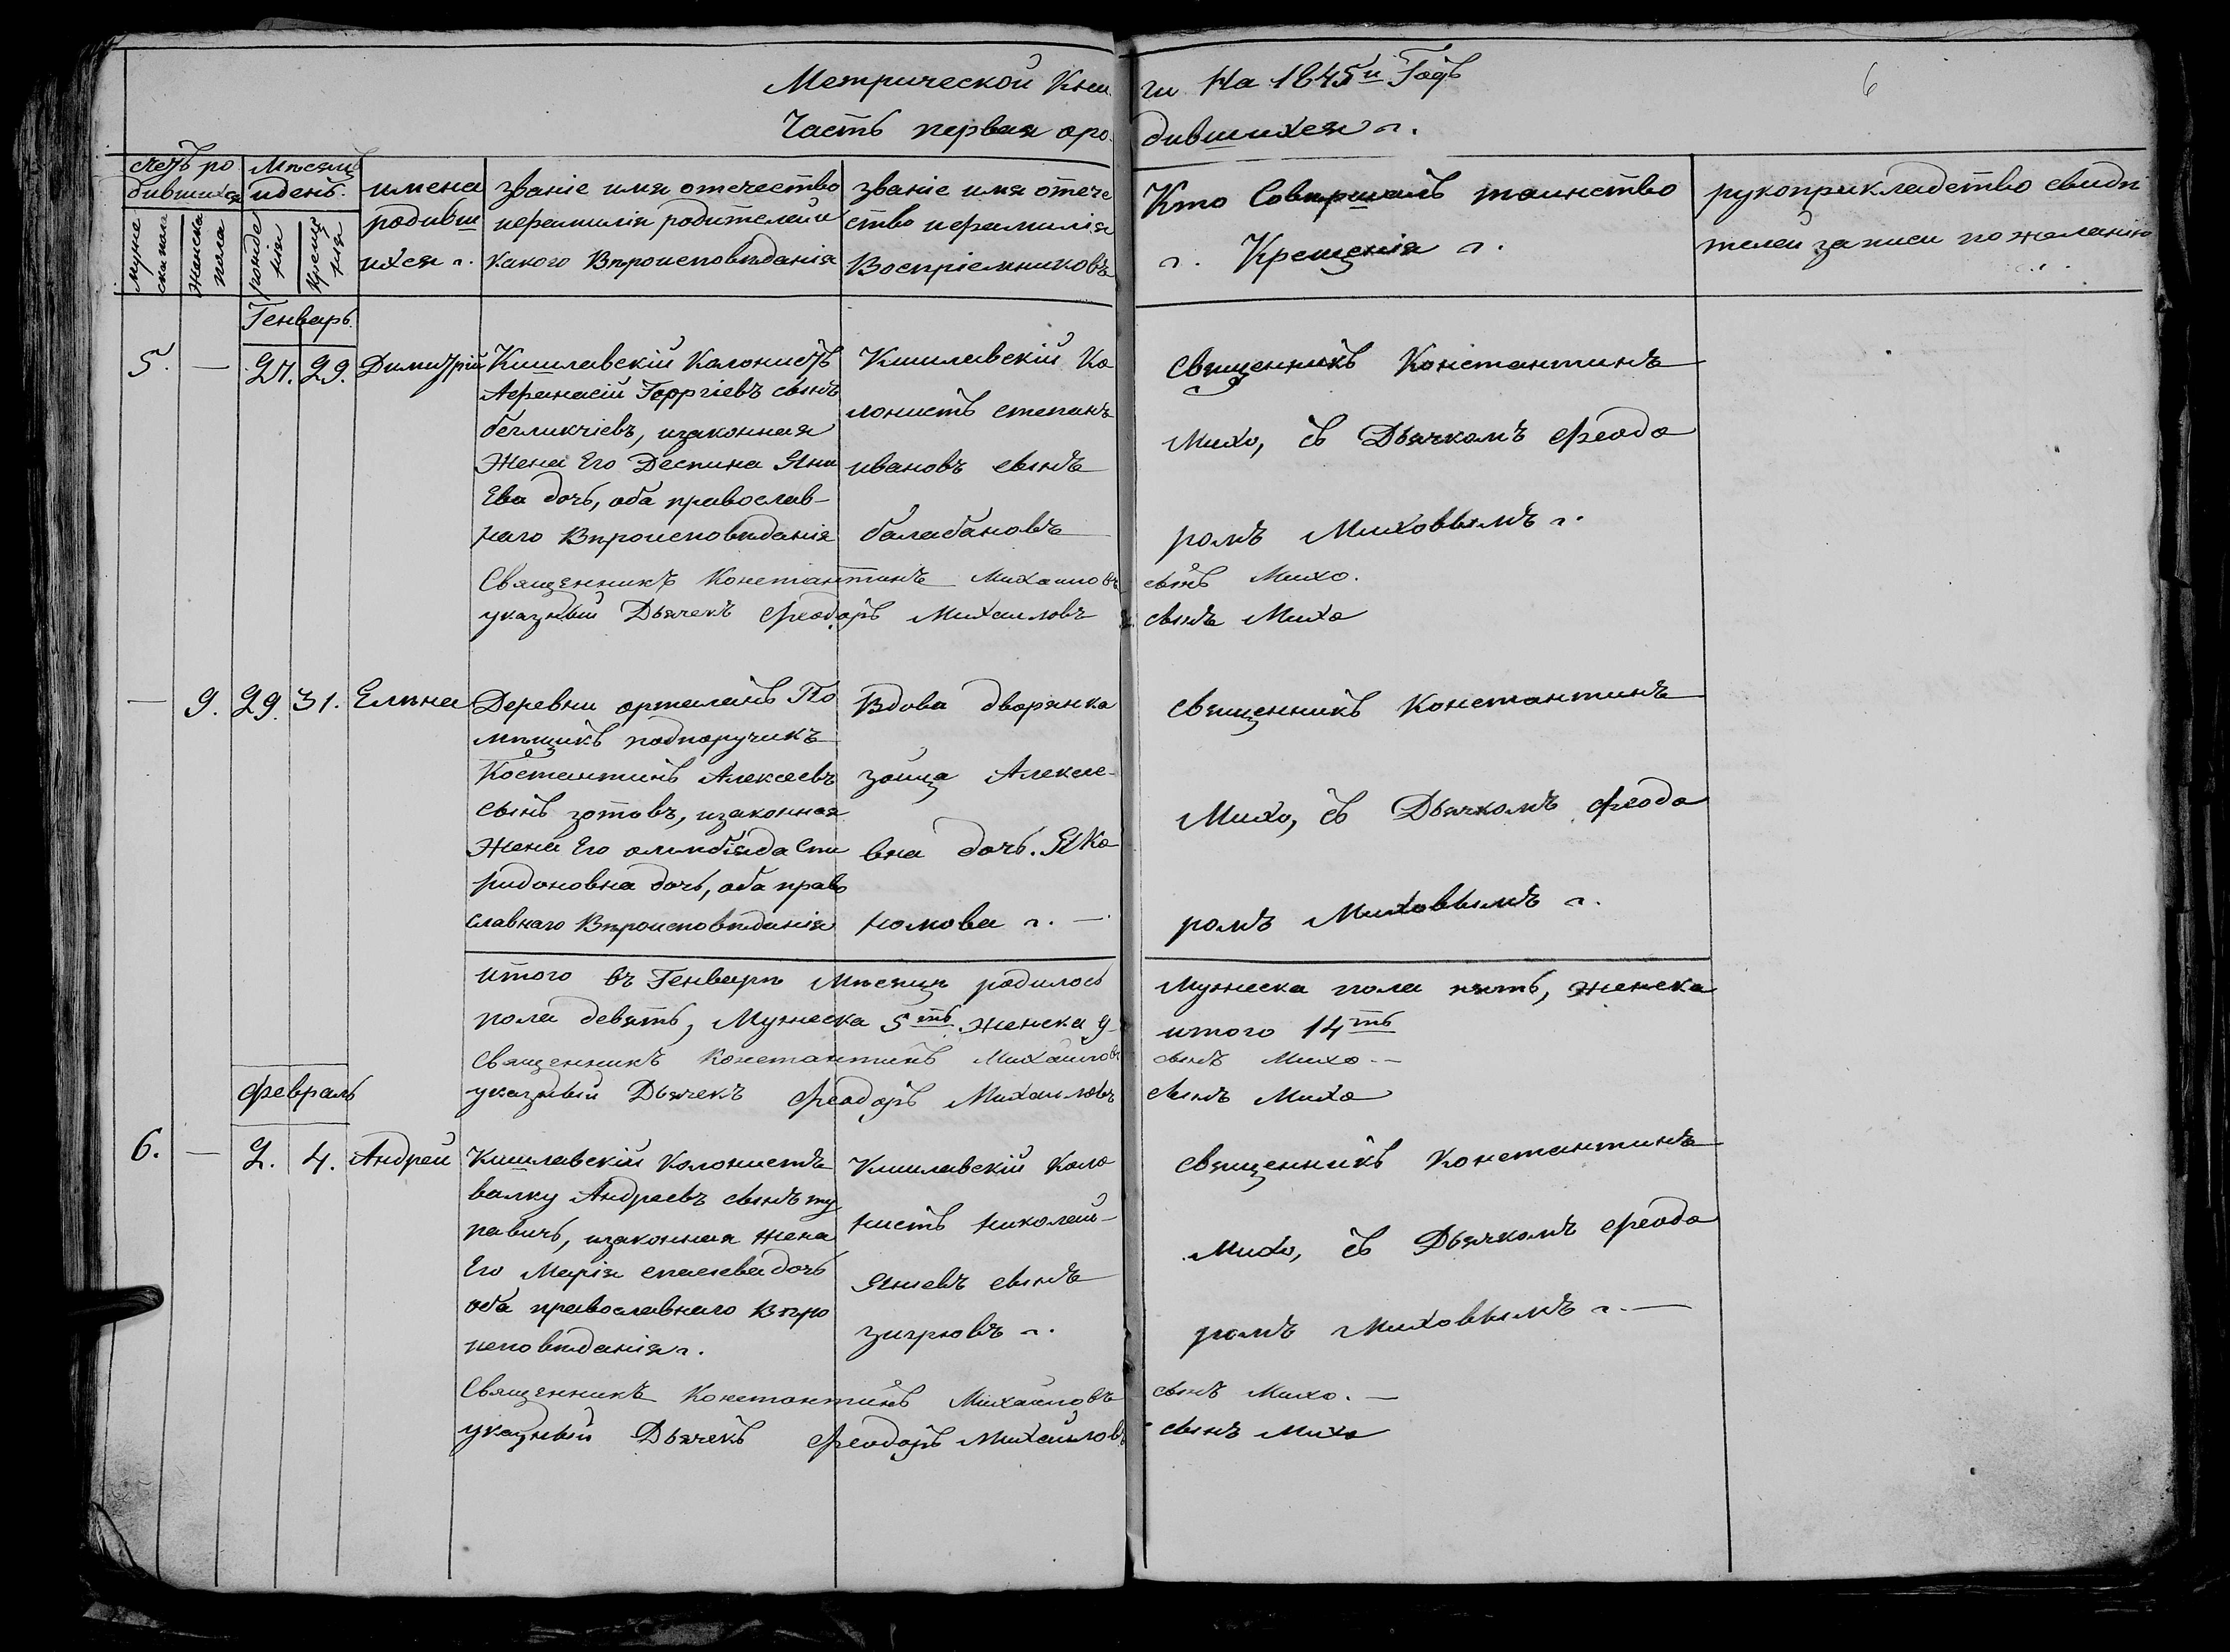 Метрической Кни
ги На 1845й Годъ
6
Часть первая оро
дившихся
счетъ ро
дившихся
Мѣсяцъ
идень.
имена
родивш
ихся
званіе имя отечество
ифамилія родителей и
какого Вѣроисповѣданія
званіе имя отече
ство ифамилія
Воспріемниковъ
Кто Совершалъ таинство
Крещенія
рукоприкладство свидѣ
телей записи по желанію
муже
ска пола
женска
пола
рожде
нія
креще
нія
Генварь.
5. — 27. 29. Димитрій
Кишлавскій Калонистъ
Афанасій Горгіевъ сынъ
бегликчіевъ, изаконная
Жена Его Деспина Яни
Ева дочь, оба православ-
наго Вѣроисповѣданія
Кишлавскій Ко
лонистъ степанъ
ивановъ сынъ
балабановъ
священникъ Константинъ
Михо, съ Дьячкомъ феодо
ромъ Миховымъ
Священникъ Константинъ Михаиловъ сынъ Михо.
указный Дьячекъ Феодоръ Михаиловъ сынъ Михо
— 9. 29. 31. Елѣна
Деревни орталанъ По
мѣщикъ подпоручикъ
Костантинъ Алексѣевъ
сынъ зотовъ, изаконная
Жена Его олимбіяда Спи
ридоновна дочь, оба право
славнаго Вѣроисповѣданія
Вдова дворянка
зоица Алексе-
вна дочь. Яко
номова
священникъ Константинъ
Михо, съ Дьячкомъ феодо
ромъ Миховымъ
итого въ Генварѣ Мѣсяцѣ родилось Мужеска пола пять, женска
пола девять, Мужеска 5ть женска 9 итого 14ть
священникъ Константинъ Михаиловъ сынъ Михо. —
указный Дьячекъ Феодоръ Михаиловъ сынъ Михо
февраль
6. — 2. 4. Андрей
Кишлавскій Колонистъ
валку Андреевъ сынъ
изаконная жена
Его Марія спасева дочь
оба православнаго Вѣро
исповѣданія.
Кишлавскій Коло
нистъ николай-
Яниевъ сынъ
священникъ Константинъ
Михо, съ Дьячкомъ феодо
ромъ Миховымъ —
Священникъ Константинъ Михаиловъ сынъ Михо. —
указный Дьячекъ Феодоръ Михаиловъ сынъ Михо